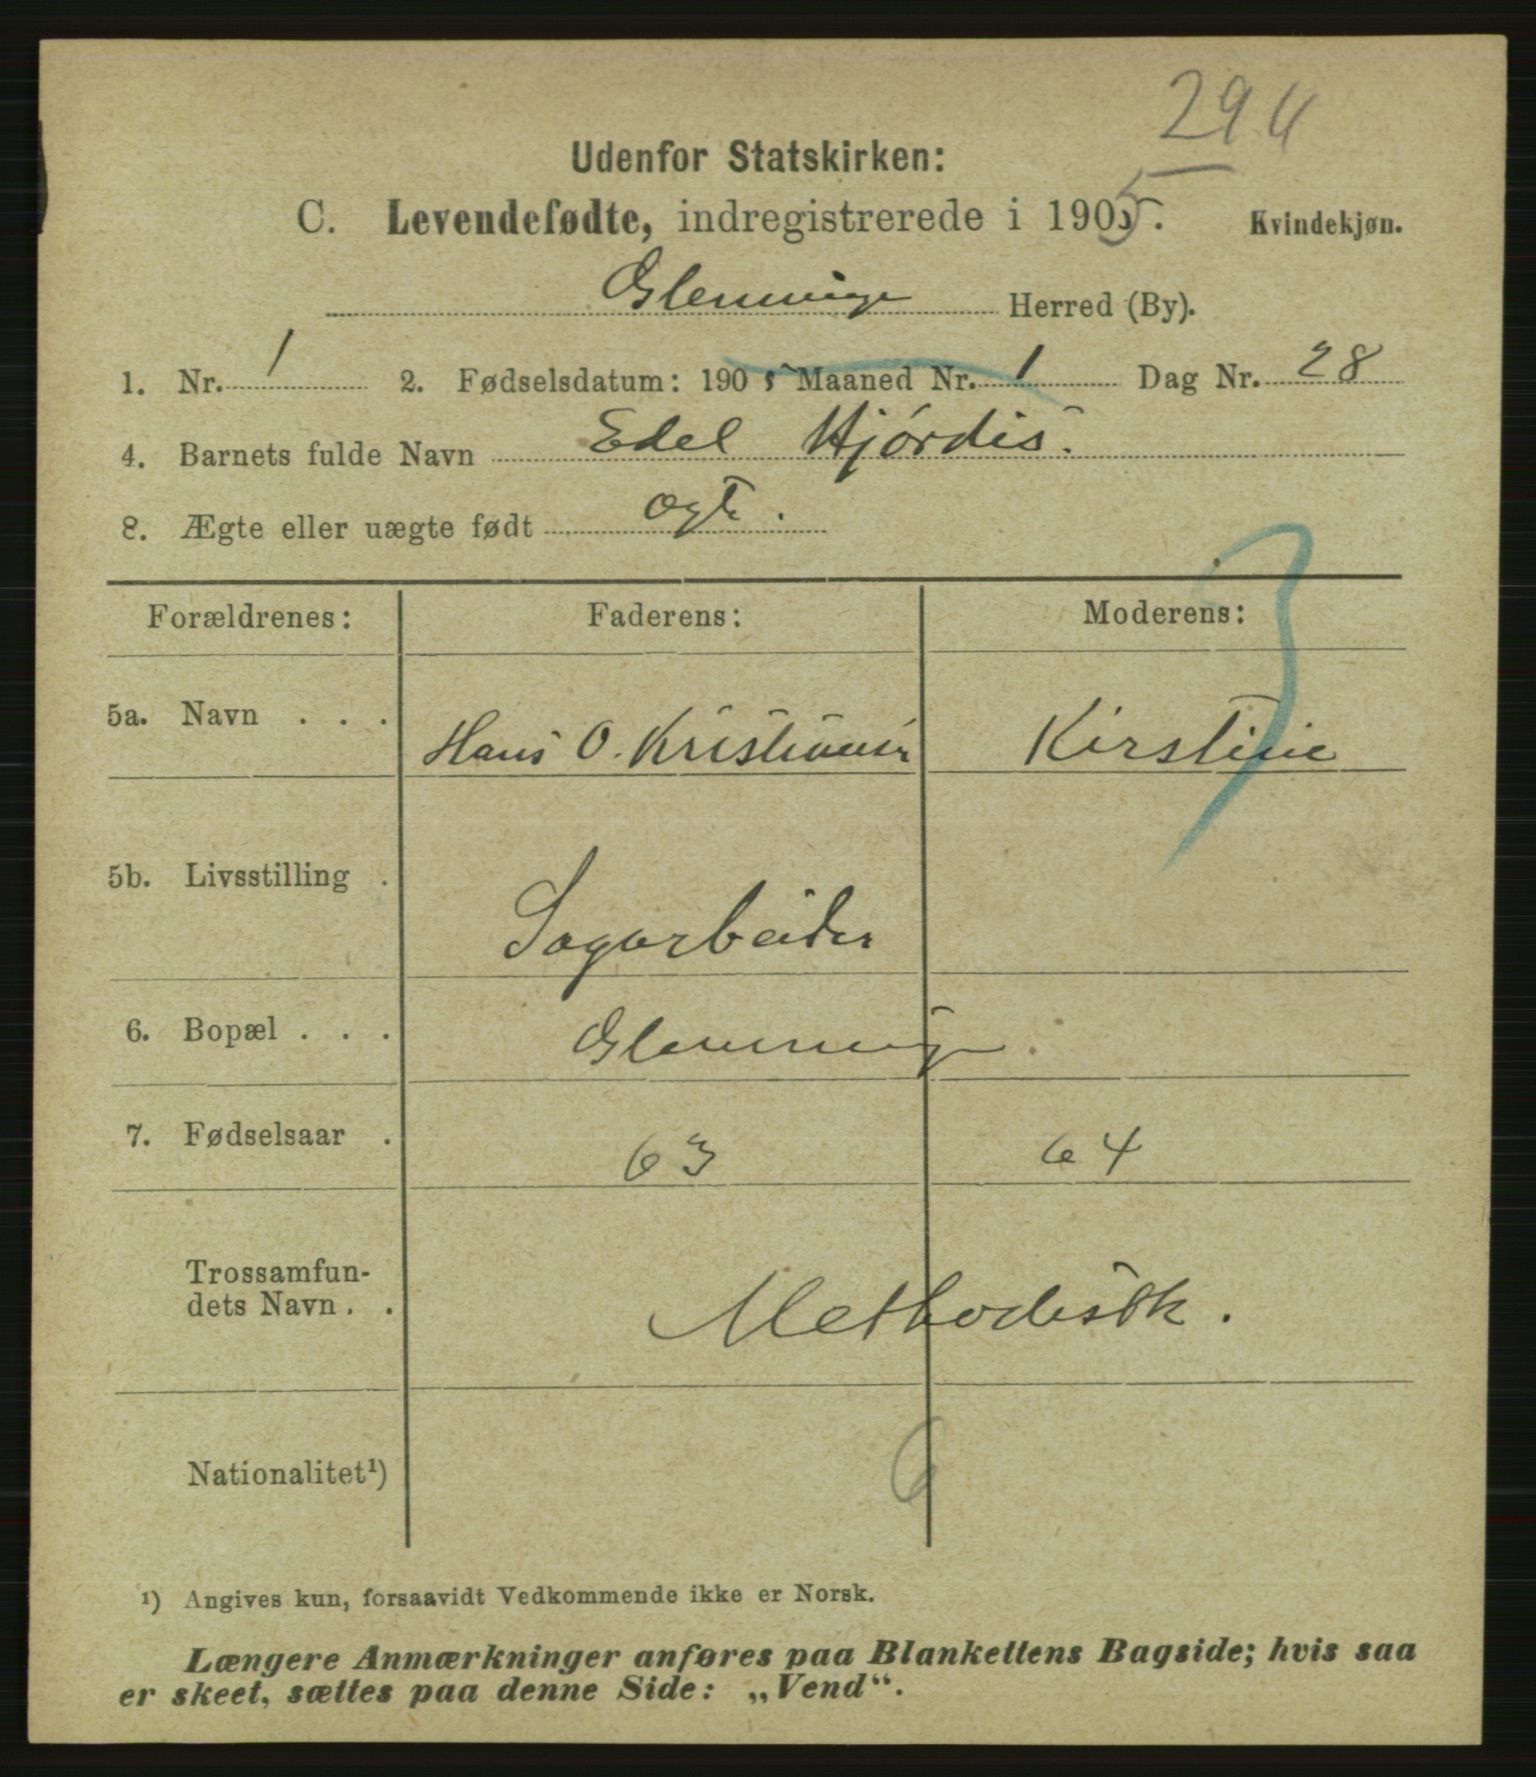 294
Udenfor Statskirken:
C. Levendefødte, indregistrerede i 1905. Kvindekjøn.
Glemminge Herred (By).
1. Nr. 1 2. Fødselsdatum: 1905 Maaned Nr. 1 Dag Nr. 28
4. Barnets fulde Navn Edel Hjórdis.
8. Ægte eller uægte født ægte.
Forældrenes: Faderens: Moderens:
5a. Navn . . . Hans O. Kristiansen Kirstine
5b. Livsstilling . Sagarbeider
6. Bopæl . . . Glemminge.
7. Fødselsaar . 63 64
Trossamfun-
dets Navn . . Methodistk.
Nationalitet¹)
¹) Angives kun, forsaavidt Vedkommende ikke er Norsk.
Længere Anmærkninger anføres paa Blankettens Bagside; hvis saa
er skeet, sættes paa denne Side: „Vend“.